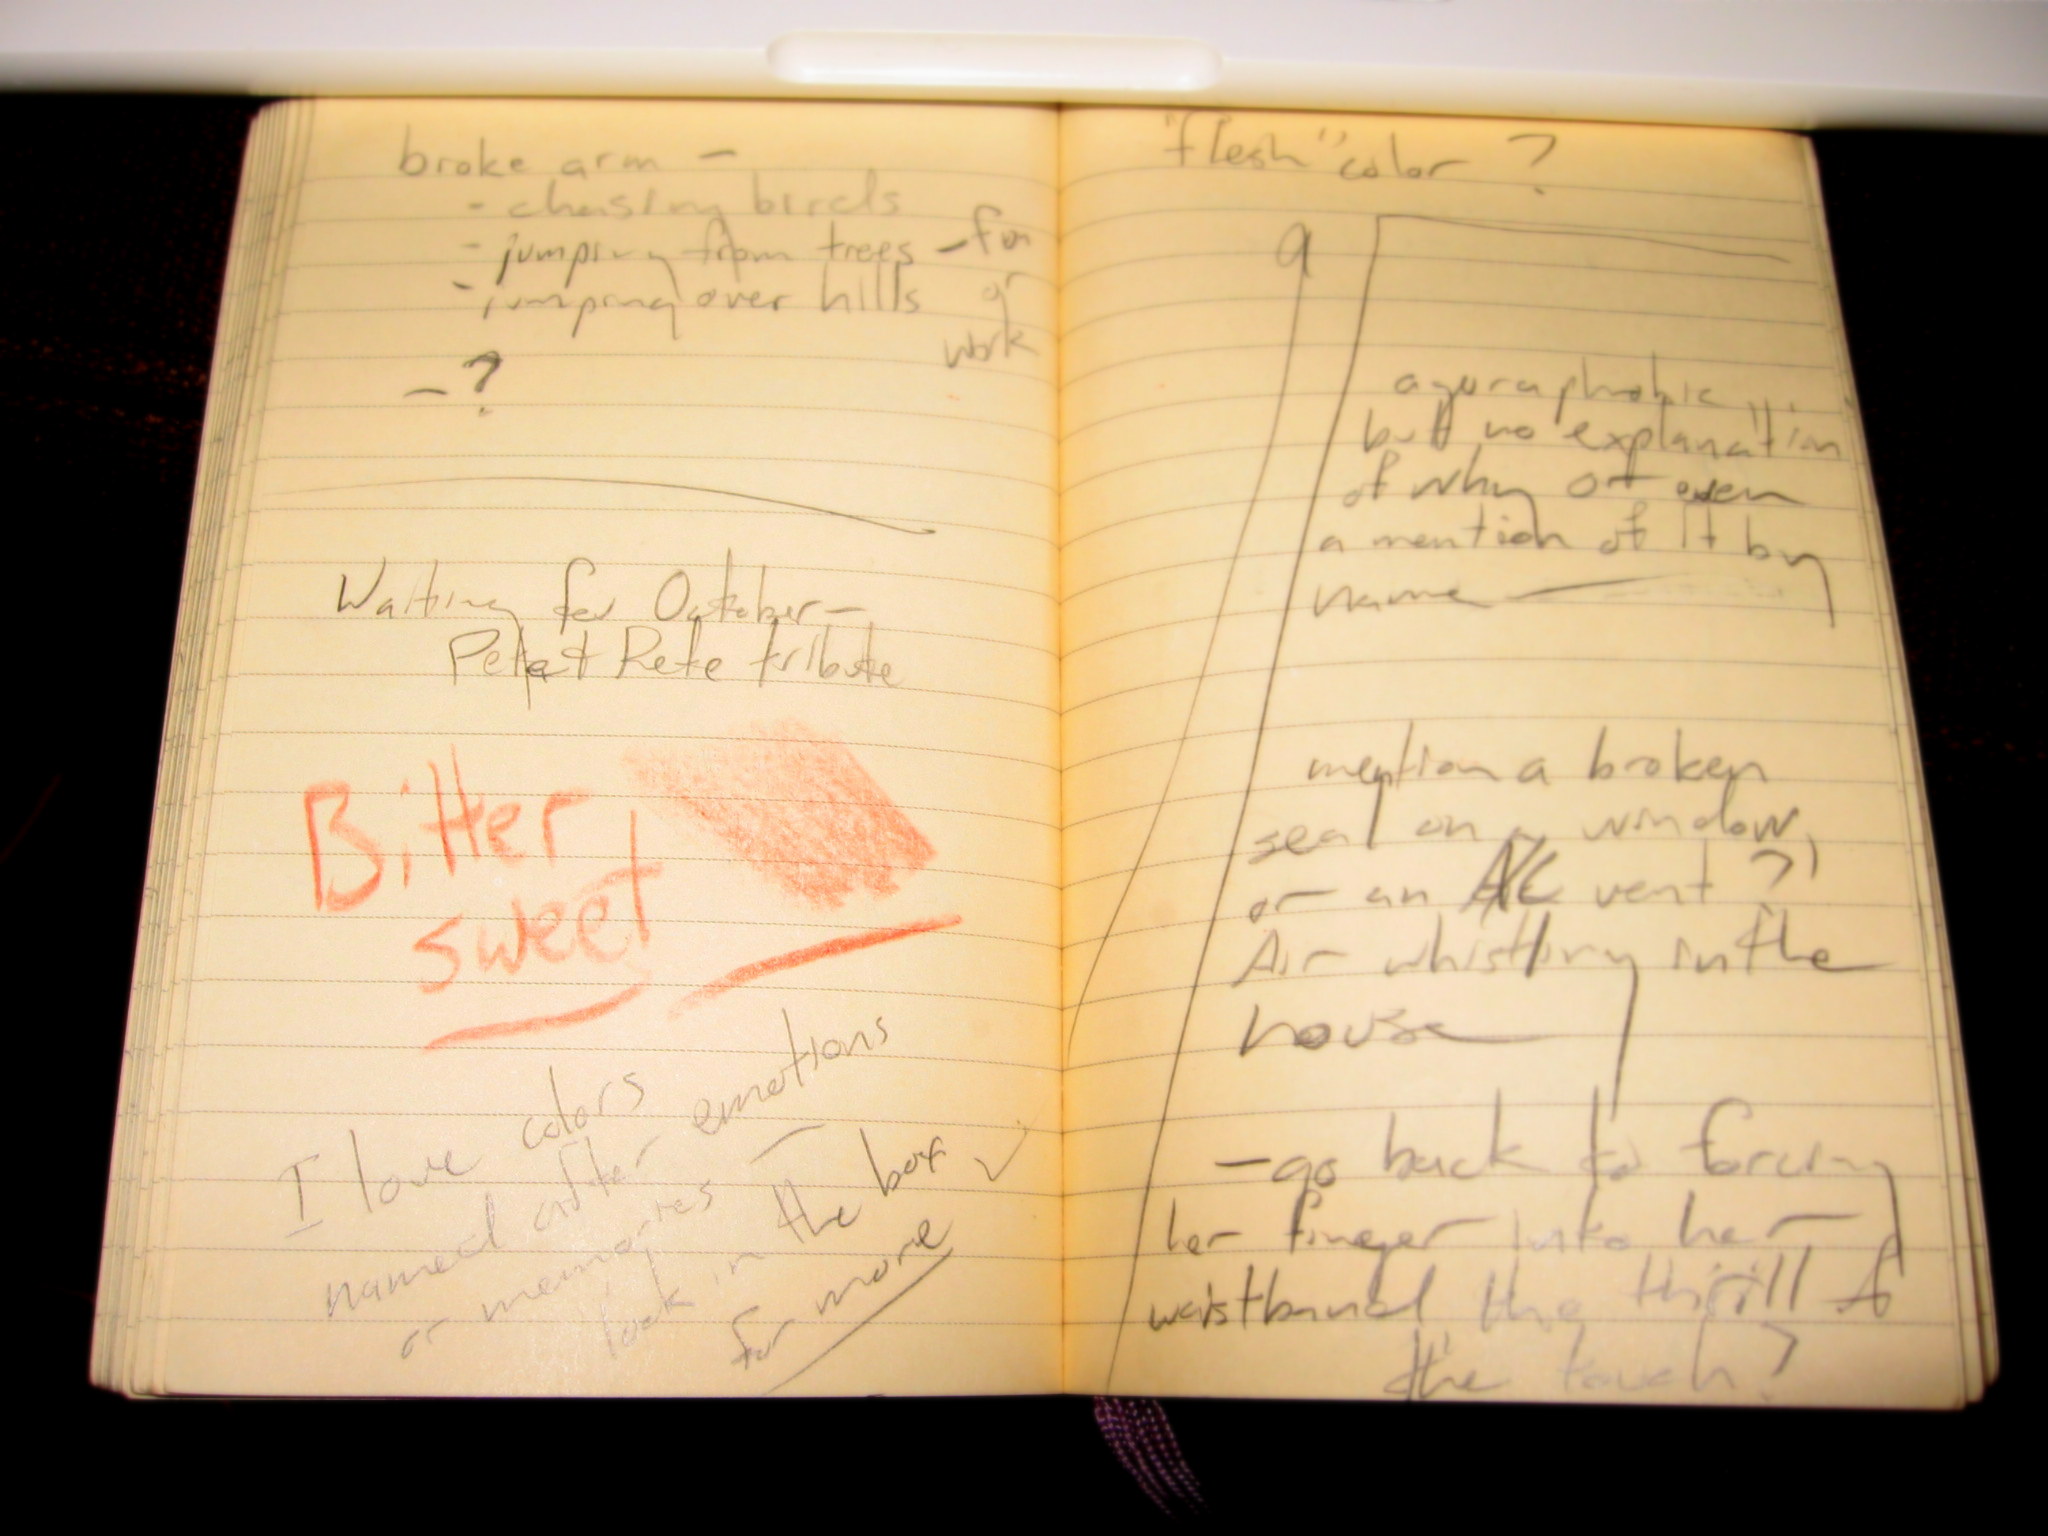 broke arm -
- chasing birds
- jumping from trees - fun
- jumping over hills or
work
- ?
Waiting for October -
Pete tribute
Bitter
sweet
I love colors
named after emotions
or memories -
look in the box
for more
"flesh" color ?
a
agoraphobic
but no explanation
of why or even
a mention of it by
name
mention a broken
seal on a window,
or an A/C vent ?
Air whistling in the
house
- go back to forcing
her finger into her
waistband the thrill of
the touch?